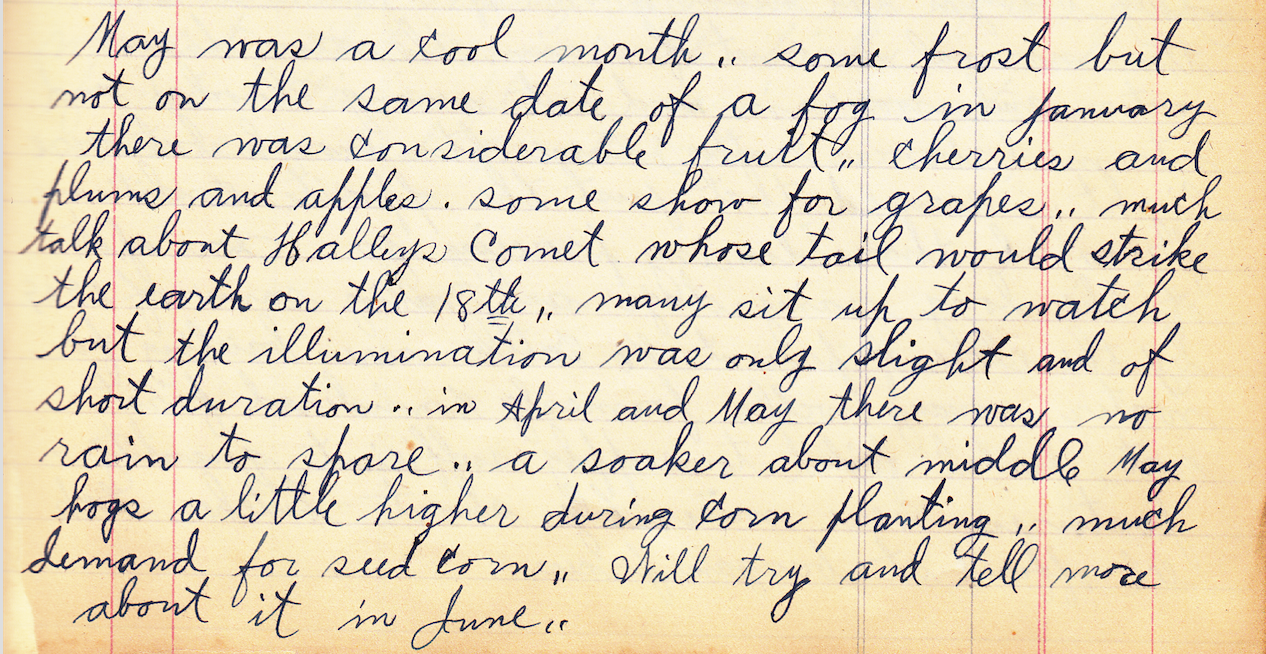 May was a cool month,, some frost but
not on the same date of a fog in january
there was considerable fruit,, cherries and
plums and apples. some show for grapes,, much
talk about Halleys Comet whose tail would strike
the earth on the 18th,, many sit up to watch
but the illumination was only slight and of
short duration,, in April and May there was no
rain to spare,, a soaker about middle May
hogs a little higher during corn planting,, much
demand for seed corn,, Will try and tell more
about it in June,,